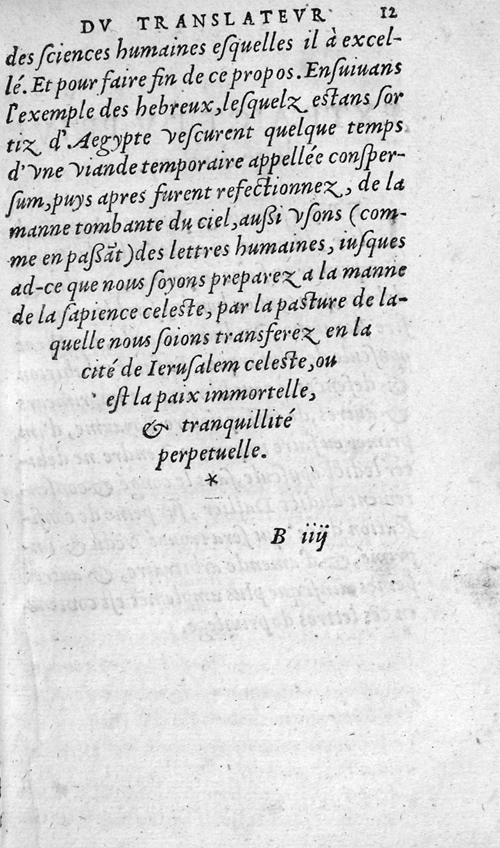 DV TRANSLATEVR 12
des ſciences humaines eſquelles il à excel-
lé. Et pour faire fin de ce propos. Enſuiuans
l'exemple des hebreux, leſquelz eſtans ſor
tiz d'Aegypte veſcurent quelque temps
d'vne viande temporaire appellée conſper-
ſum, puys apres furent refectionnez, de la
manne tombante du ciel, außi vſons (com-
me en paßãt) des lettres humaines, iuſques
ad-ce que nous ſoyons preparez a la manne
de la ſapience celeſte, par la paſture de la-
quelle nous ſoions transferez en la
cité de Ieruſalem celeſte, ou
eſt la paix immortelle,
& tranquillité
perpetuelle.
*
B iiij